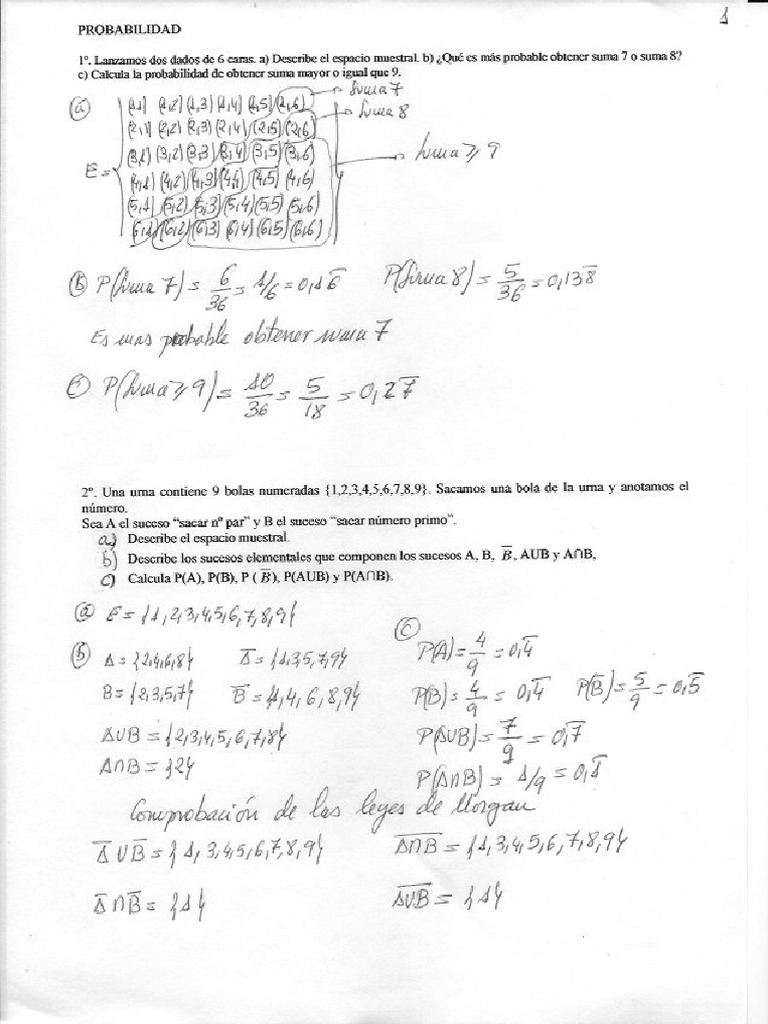 1
PROBABILIDAD
1º. Lanzamos dos dados de 6 caras. a) Describe el espacio muestral. b) ¿Qué es más probable obtener suma 7 o suma 8?
c) Calcula la probabilidad de obtener suma mayor o igual que 9.
a) (1,1) (1,2) (1,3) (1,4) (1,5) (1,6) → Suma 7
(2,1) (2,2) (2,3) (2,4) (2,5) (2,6) → Suma 8
(3,1) (3,2) (3,3) (3,4) (3,5) (3,6) → Suma ≥ 9
E = (4,1) (4,2) (4,3) (4,4) (4,5) (4,6)
(5,1) (5,2) (5,3) (5,4) (5,5) (5,6)
(6,1) (6,2) (6,3) (6,4) (6,5) (6,6)
b) P(Suma 7) = 6/36 = 1/6 = 0,16̅ P(Suma 8) = 5/36 = 0,138̅
Es mas probable obtener suma 7
c) P(Suma ≥ 9) = 10/36 = 5/18 = 0,27̅
2º. Una urna contiene 9 bolas numeradas {1,2,3,4,5,6,7,8,9}. Sacamos una bola de la urna y anotamos el
número.
Sea A el suceso “sacar nº par” y B el suceso “sacar número primo”.
a) Describe el espacio muestral.
b) Describe los sucesos elementales que componen los sucesos A, B, B̅, AUB y A∩B,
c) Calcula P(A), P(B), P ( B̅), P(AUB) y P(A∩B).
a) E = {1,2,3,4,5,6,7,8,9}
b) A = {2,4,6,8} A̅ = {1,3,5,7,9}
B = {2,3,5,7} B̅ = {1,4,6,8,9}
A∪B = {2,3,4,5,6,7,8}
A∩B = {2}
c) P(A) = 4/9 = 0,4̅
P(B) = 4/9 = 0,4̅ P(B̅) = 5/9 = 0,5̅
P(A∪B) = 7/9 = 0,7̅
P(A∩B) = 1/9 = 0,1̅
Comprobación de las leyes de Morgan
A̅ ∪ B̅ = {1,3,4,5,6,7,8,9} A̅∩̅B̅ = {1,3,4,5,6,7,8,9}
A̅ ∩ B̅ = {1} A̅∪̅B̅ = {1}